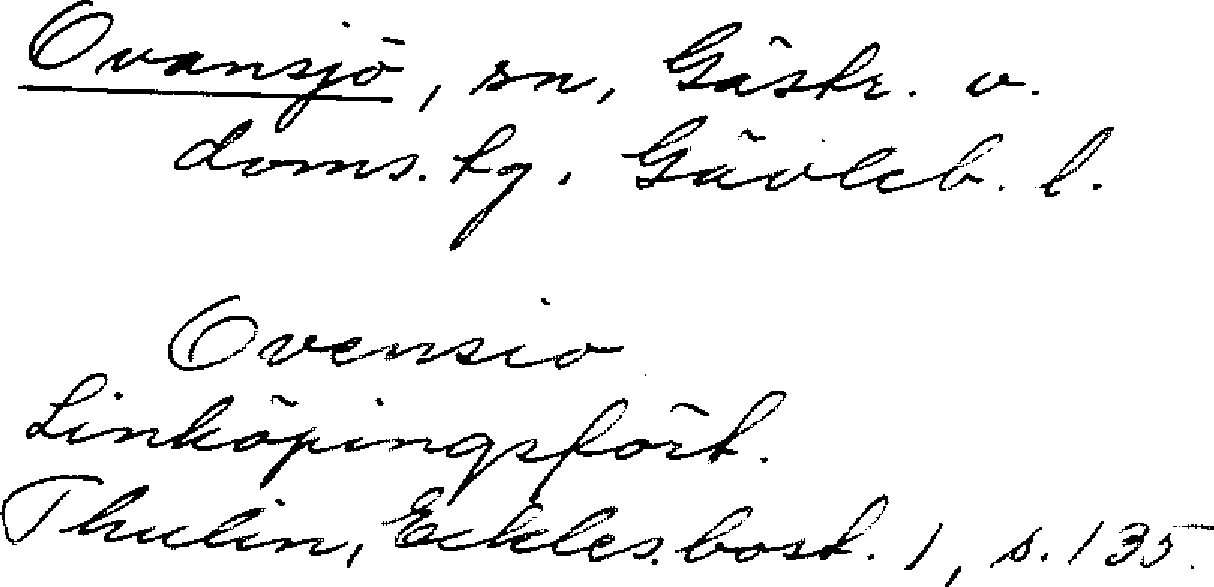 Ovansjö, sn, Gästr. v.
doms. tg. Gävleb. l.
Ovensio
Linköpingsfört.
Thulin, Eckles.bost. 1, s. 135.